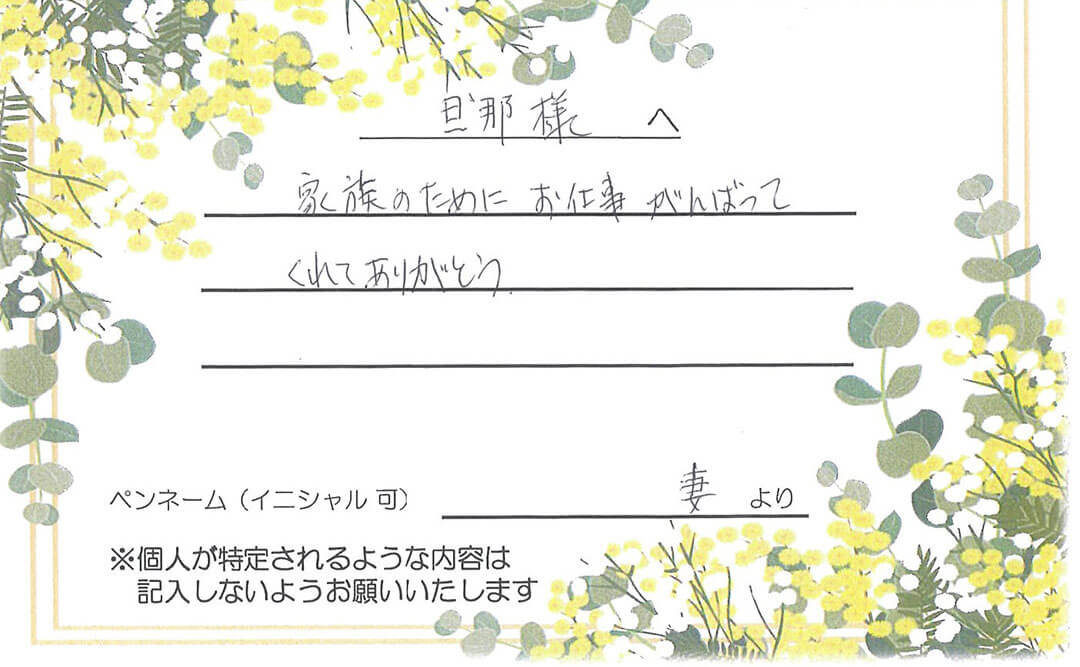 旦那様 へ
家族のために お仕事 がんばって
くれて ありがとう
ペンネーム（イニシャル 可） 妻 より
※個人が特定されるような内容は
記入しないようお願いいたします